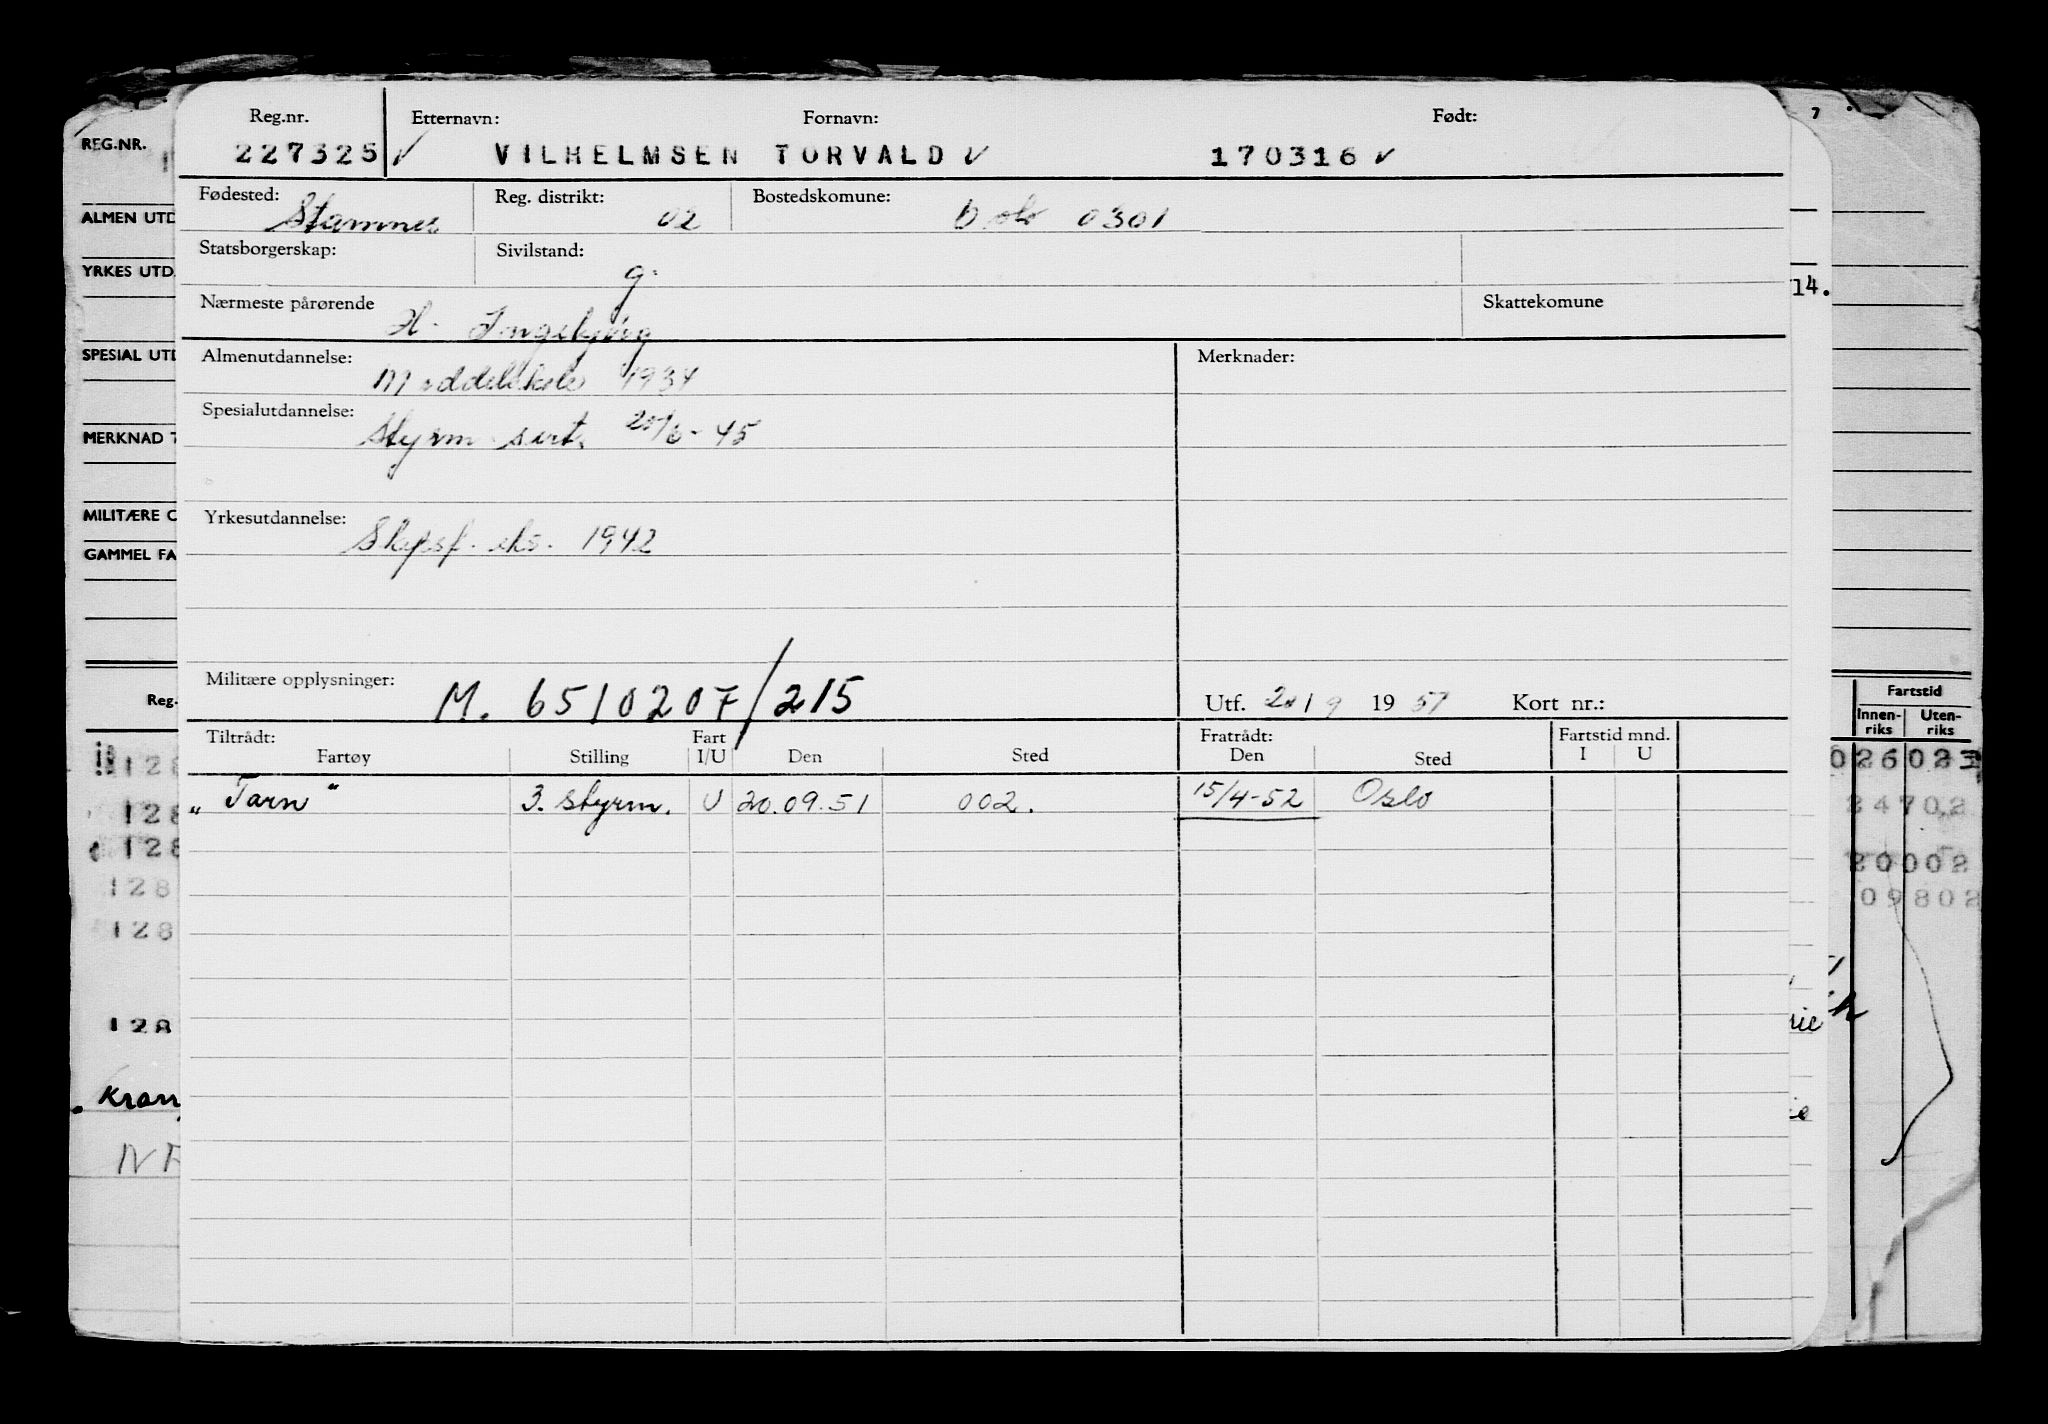 Reg.nr. Etternavn: Fornavn: Født:
227325 ✓ VILHELMSEN TORVALD ✓ 170316 ✓
Fødested: Stamnes Reg. distrikt: 02 Bostedskomune: Oslo 0301
Statsborgerskap: Sivilstand: g.
Nærmeste pårørende H. Ingebjørg Skattekomune
Almenutdannelse: Middelskole 1934 Merknader:
Spesialutdannelse: Styrm. sert. 20/6-45
Yrkesutdannelse: Skipsf. eks. 1942
Militære opplysninger: M. 6510207/215 Utf. 20/9 1951 Kort nr.:
Tiltrådt: Fart Fratrådt: Fartstid mnd.
Fartøy Stilling I/U Den Sted Den Sted I U
"Tarn" 3. styrm. U 20.09.51 002. 15/4-52 Oslo
REG.NR.
ALMEN UTD
YRKES UTD.
SPESIAL UTD
MERKNAD
MILITÆRE
GAMMEL FA
Reg.
128
128
128
128
128
128
Kran
NF
7
14.
Fartstid
Innen-riks Uten-riks
02602
34702
20002
09802